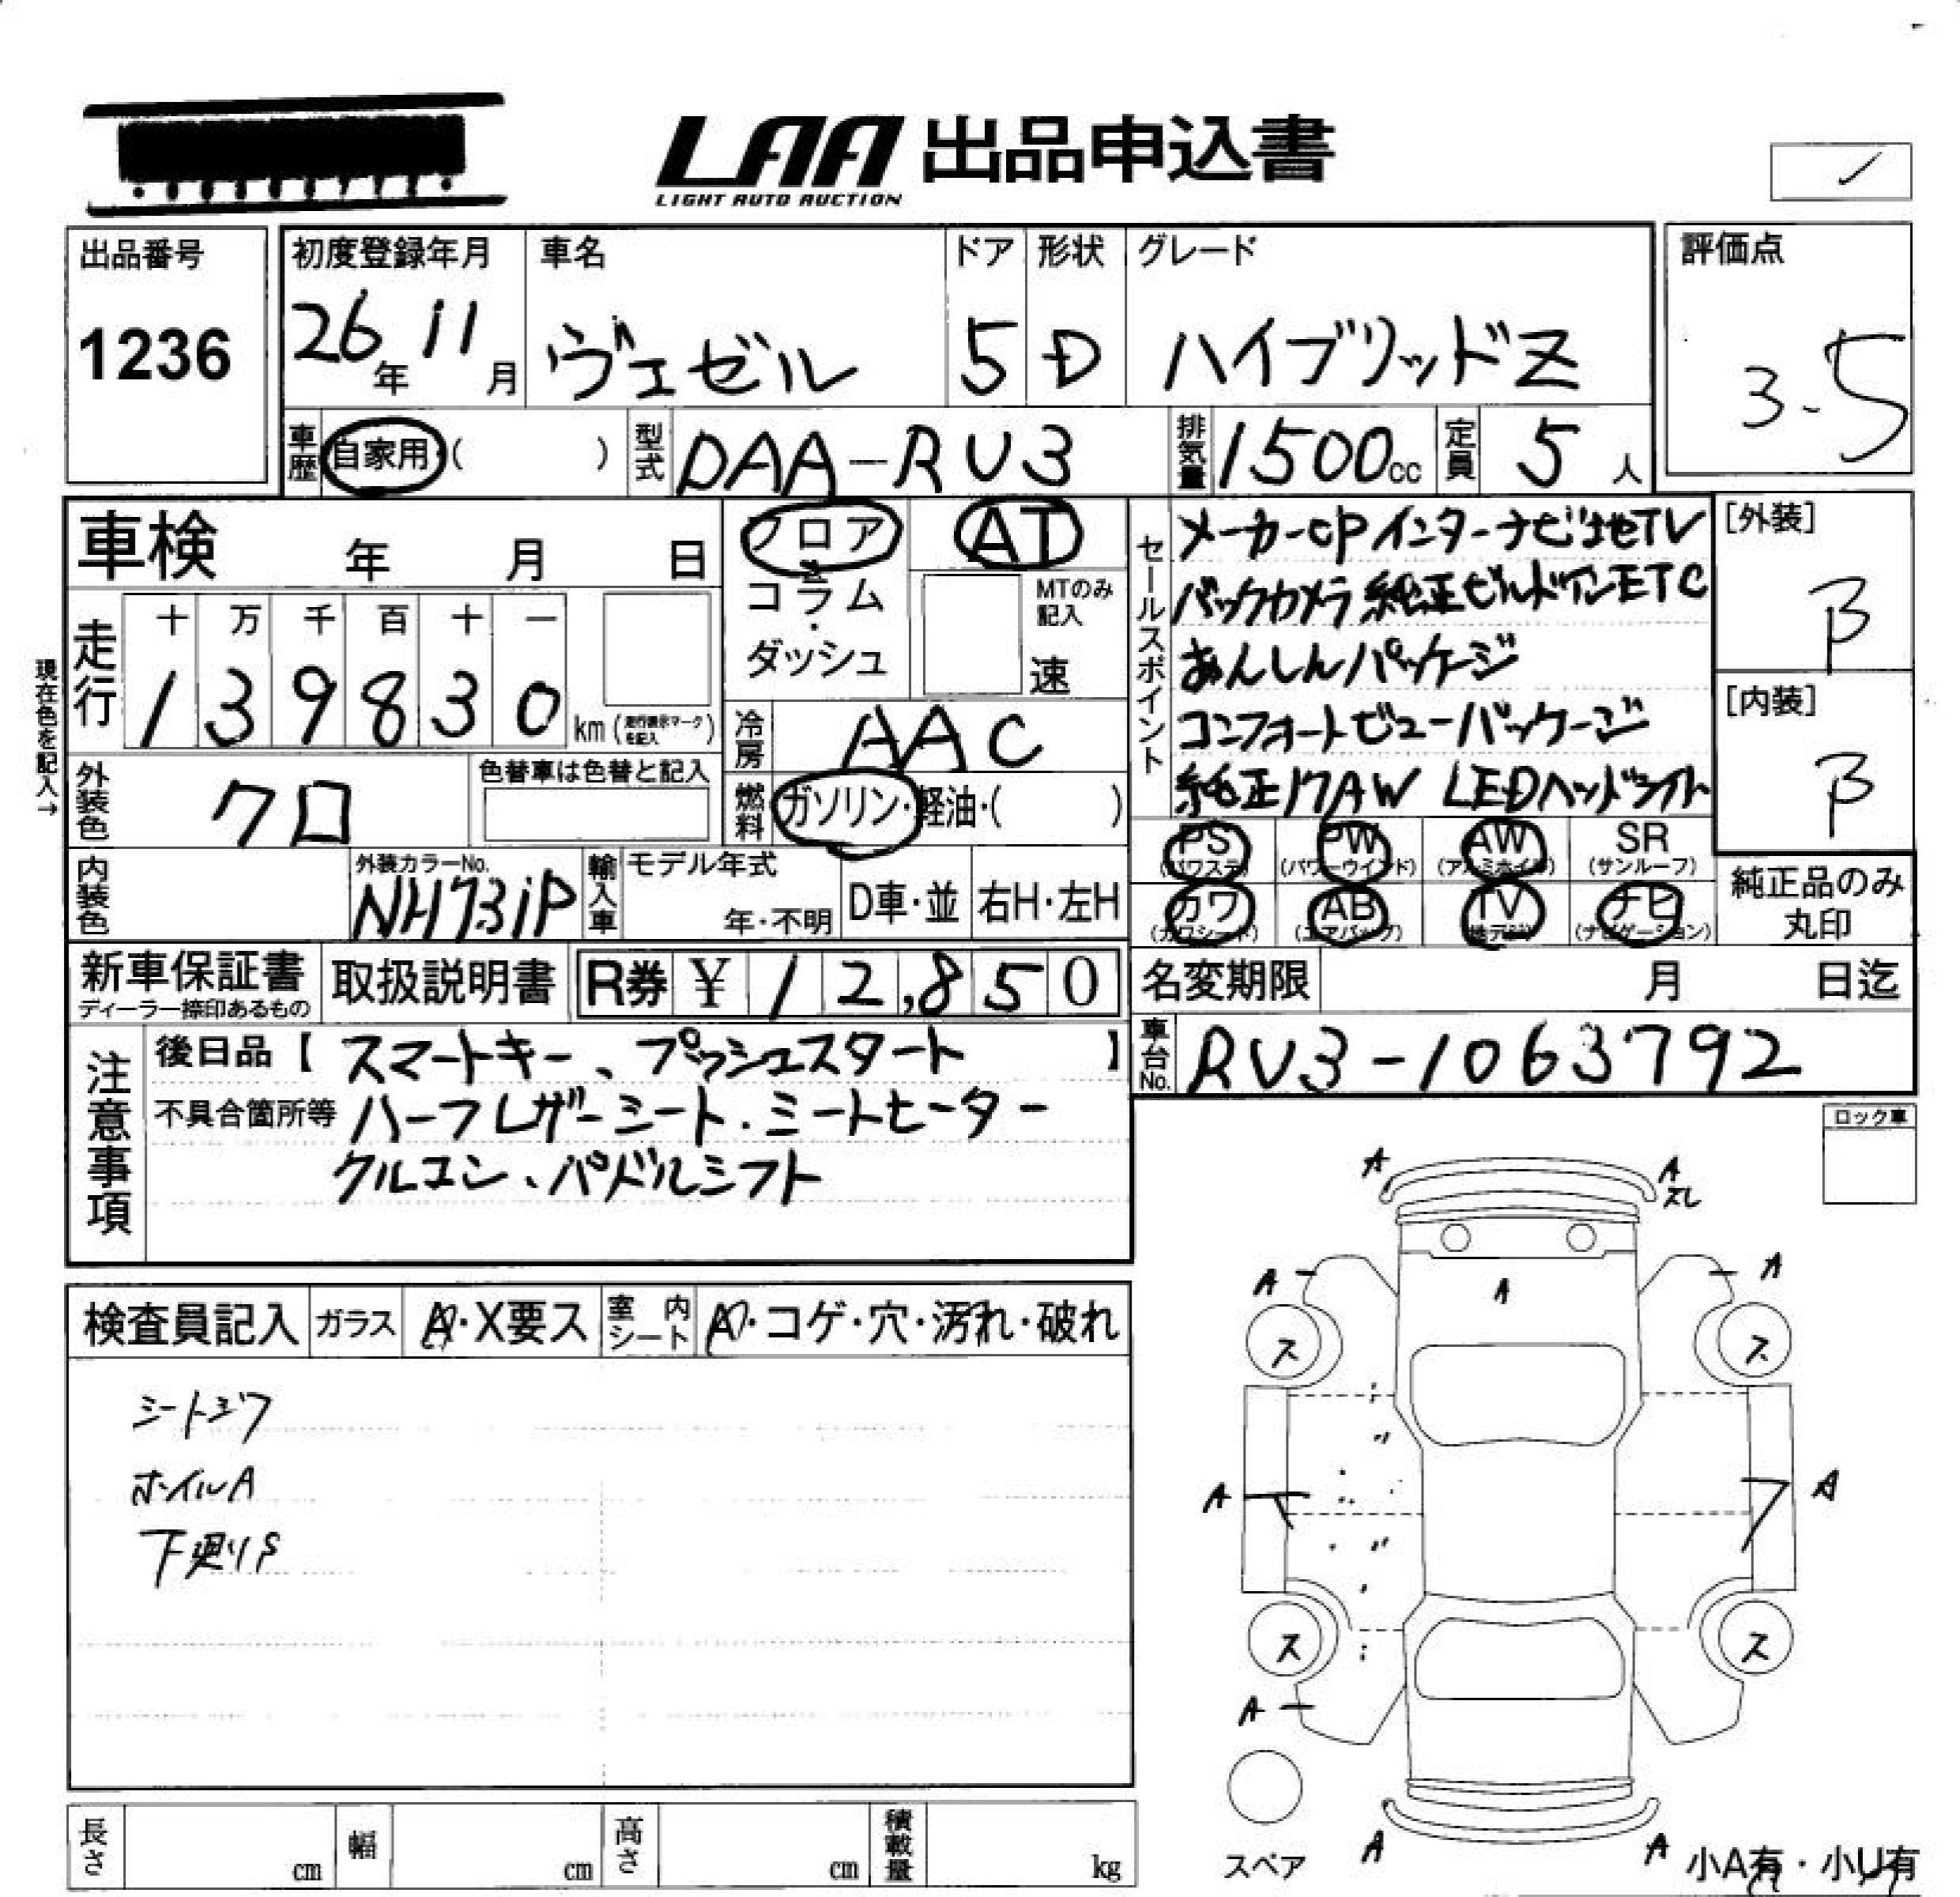 LAA 出品申込書
LIGHT AUTO AUCTION
出品番号
1236
初度登録年月
26年 11月
車名
ヴェゼル
ドア
5
形状
D
グレード
ハイブリッドZ
評価点
3.5
車歴
自家用・( )
型式
DAA-RU3
排気量
1500cc
定員
5人
車検 年 月 日
フロア
コラム
・
ダッシュ
AT
MTのみ
記入
速
セールスポイント
メーカーOPインターナビ 地TV
バックカメラ 純正ビルドインETC
あんしんパッケージ
コンフォートビューパッケージ
純正17AW LEDヘッドライト
[外装]
β
[内装]
β
現在色を記入→
走行
十 万 千 百 十 一
1 3 9 8 3 0 km(走行表示マークを記入)
冷房
AAC
外装色
クロ
色替車は色替と記入
燃料
ガソリン・軽油・( )
PS
(パワステ)
PW
(パワーウインド)
AW
(アルミホイル)
SR
(サンルーフ)
カワ
(カワシート)
AB
(エアバッグ)
TV
(地デジ)
ナビ
(ナビゲーション)
純正品のみ
丸印
内装色
外装カラーNo.
NH731P
輸入車
モデル年式
年・不明
D車・並
右H・左H
新車保証書
ディーラー捺印あるもの
取扱説明書
R券 ¥ 12,850
名変期限 月 日迄
車台No.
RU3-1063792
注意事項
後日品【 スマートキー、プッシュスタート 】
不具合箇所等 ハーフレザーシート.シートヒーター
クルコン、パドルシフト
ロック車
検査員記入
ガラス
A・X要ス
室内シート
A・コゲ・穴・汚れ・破れ
シートシワ
ホイルA
下廻りS
A
A
スレ
A
A
A
ス
ス
A
A
ス
ス
A
スペア
A
A
小A有・小U有
長さ cm
幅 cm
高さ cm
積載量 kg